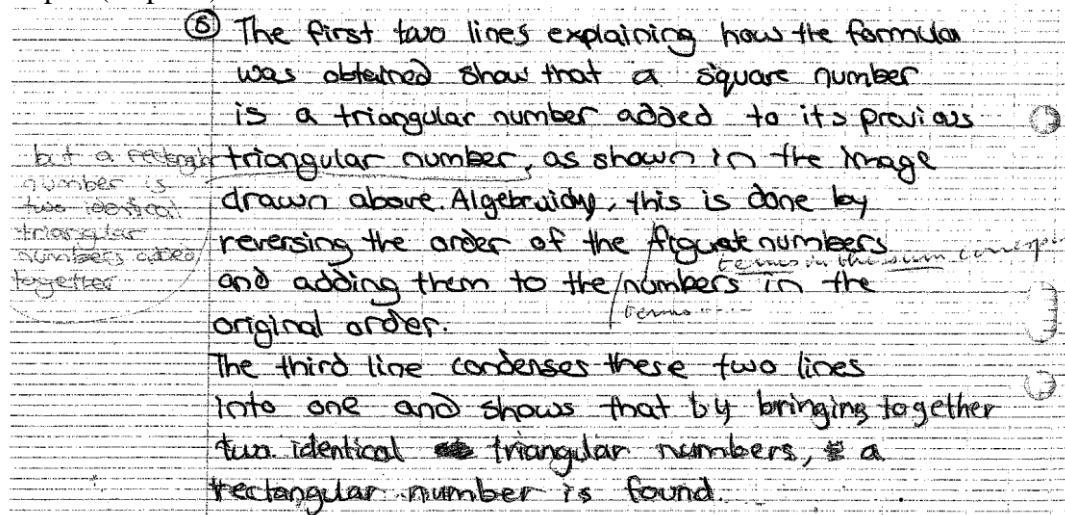 ⑤ The first two lines explaining how the formula
was obtained show that a square number
is a triangular number added to its previous
triangular number, as shown in the image
drawn above. Algebraicly, this is done by
reversing the order of the numbers
and adding them to the numbers in the
original order.
The third line condenses these two lines
into one and shows that by bringing together
two identical triangular numbers, a
rectangular number is found.
but a rectangle
number is
two identical
triangular
numbers added
together
terms in the sum
terms